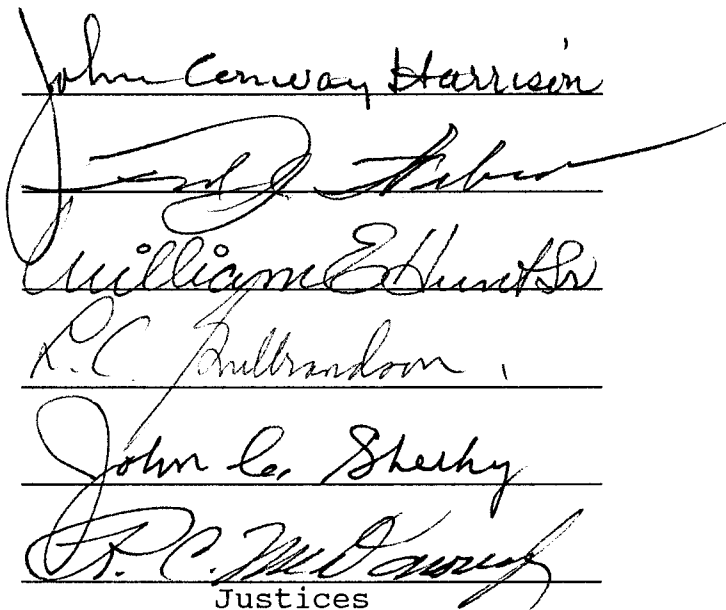 John Conway Harrison
Fred J. Weber
William E Hunt Sr
L.C. Gulbrandson
John C. Sheehy
R. C. McDonough
Justices